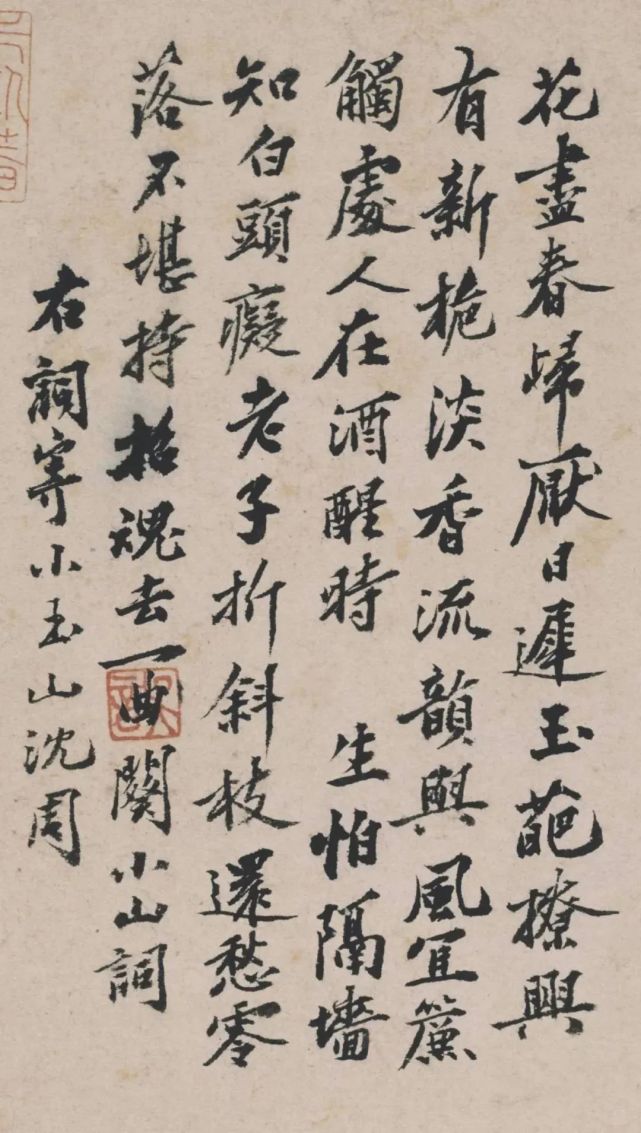 花盡春歸厭日遲玉葩撩興
有新梔淡香流韻與風宜簾
觸處人在酒醒時 生怕隔墻
知白頭癡老子折斜枝還愁零
落不堪持招魂去一曲關小山詞
右詞寄小玉山沈周